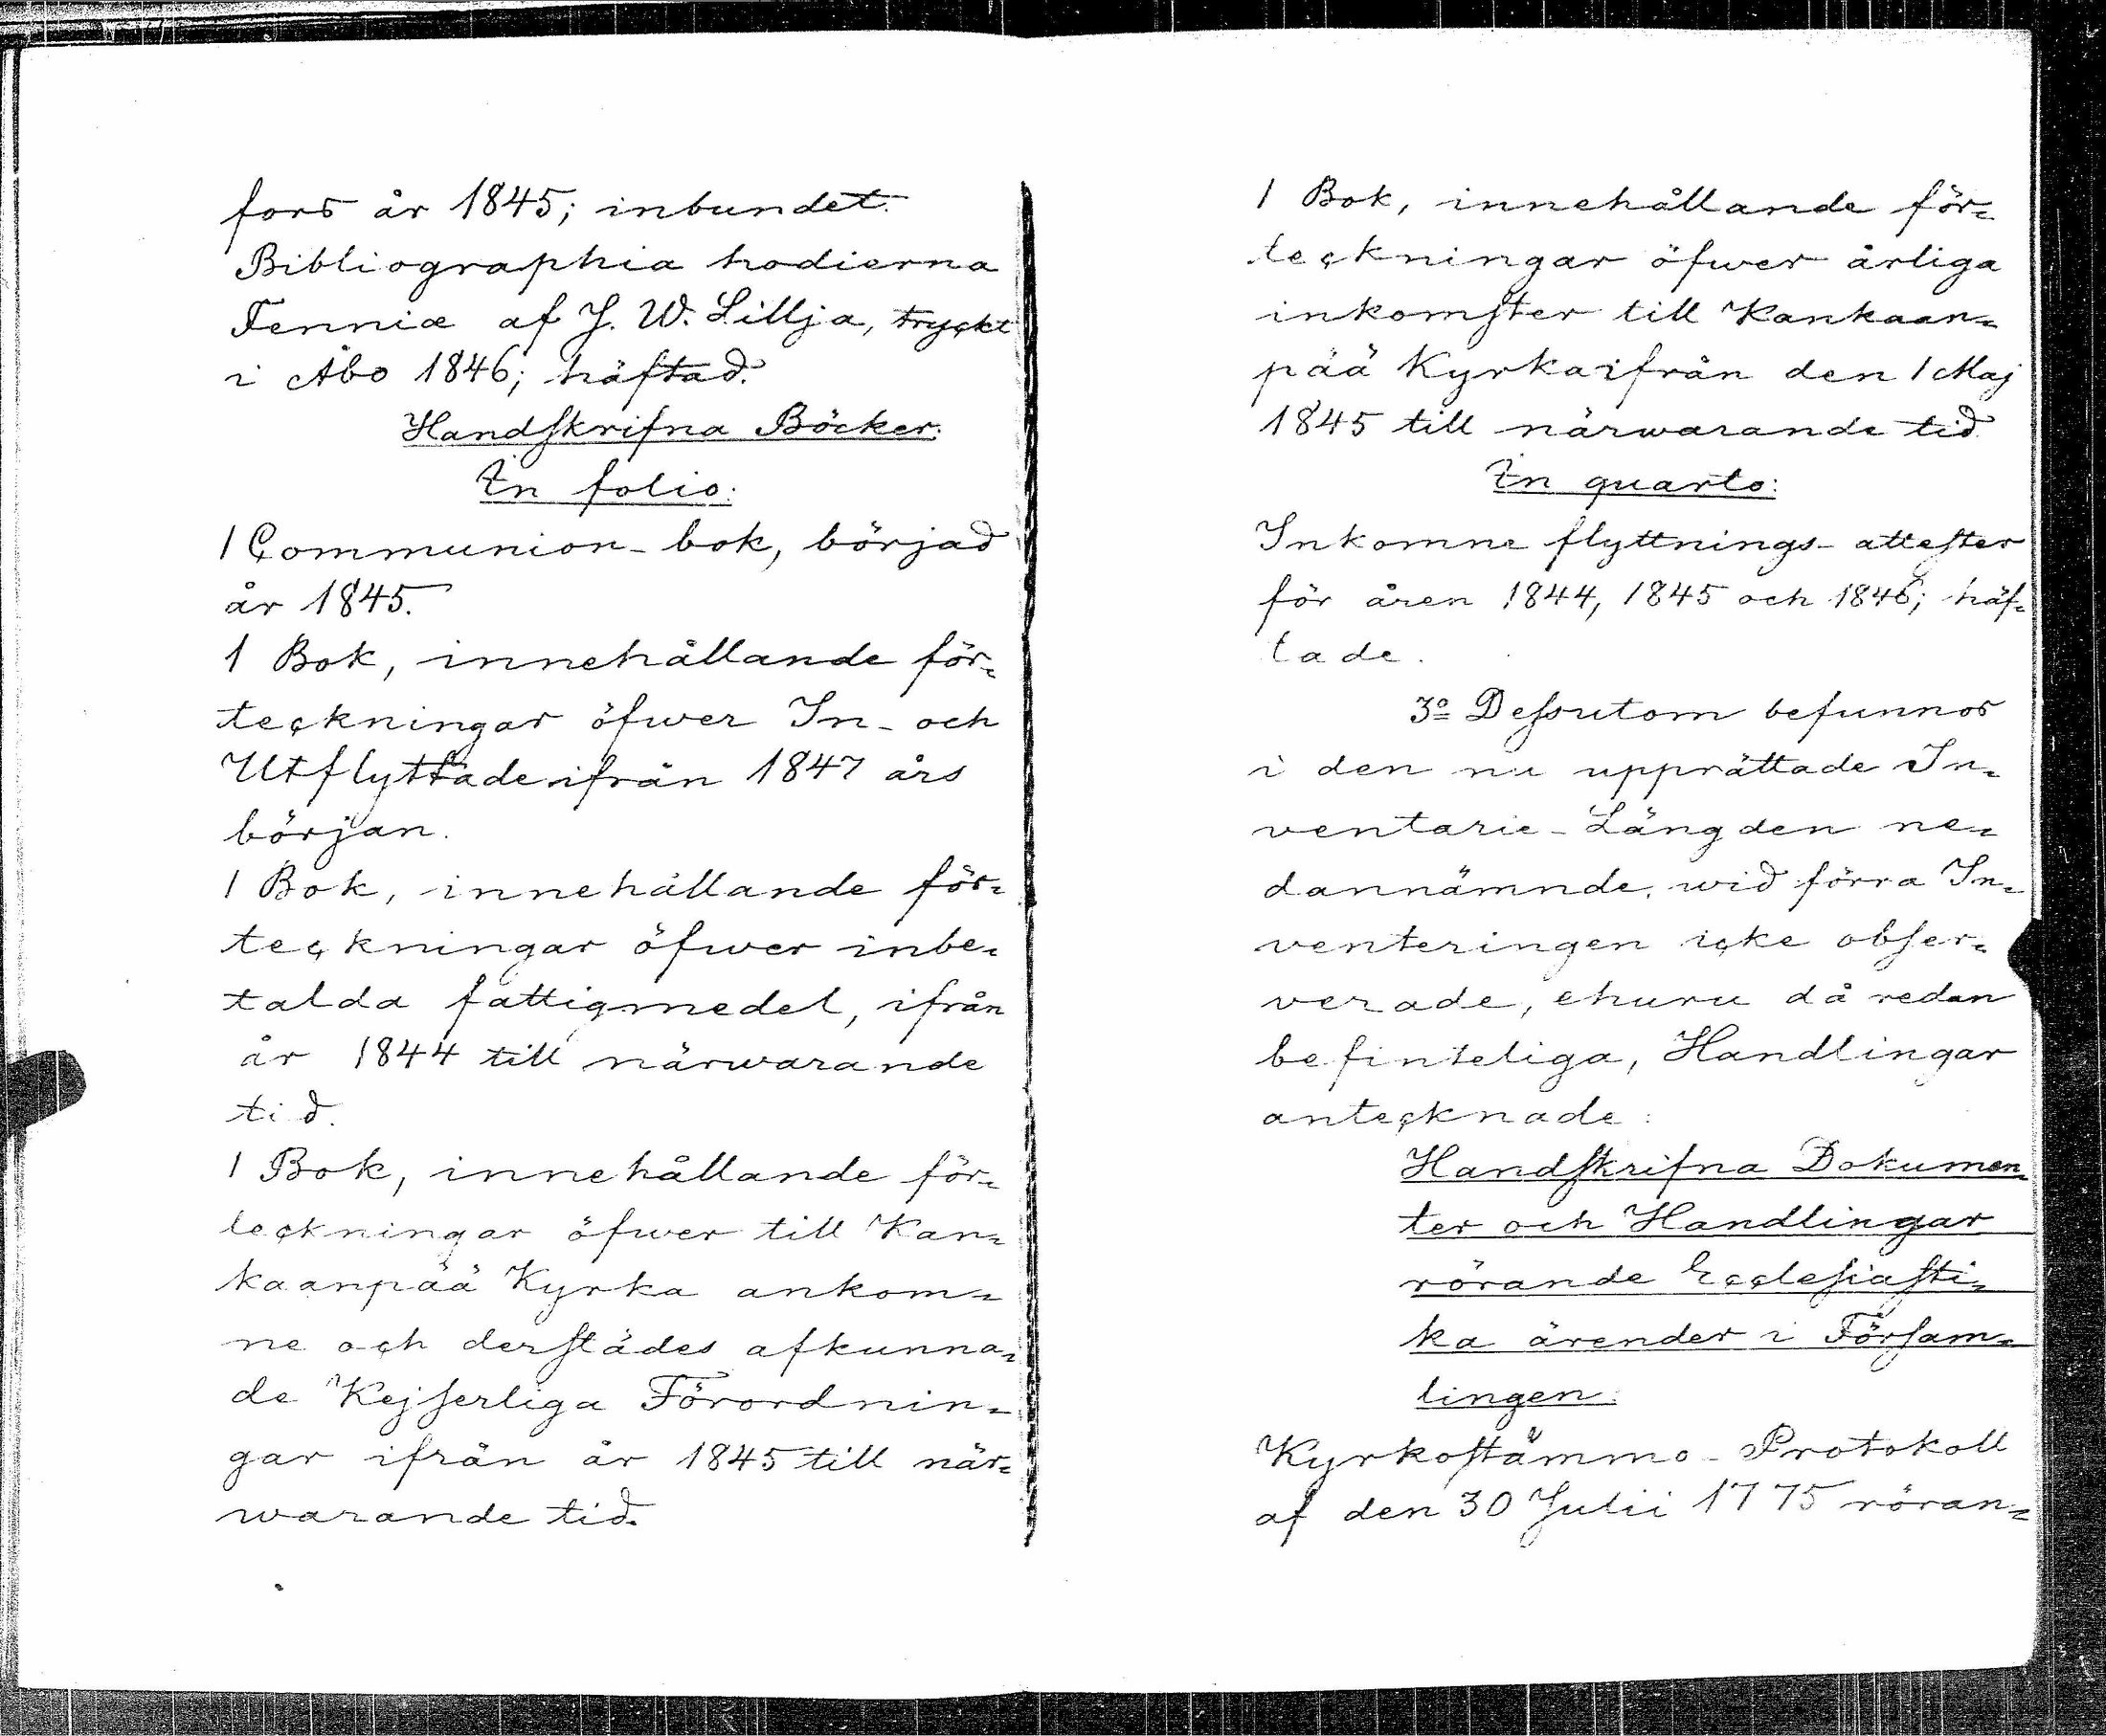 fors år 1845; inbundet.
Bibliographia hodierna
Fenniæ af J. W. Lillja, tryckt
i Åbo 1846; häftad.
Handskrifna Böcker.
In folio:
1 Communion-bok, börjad
år 1845.
1 Bok, innehållande för=
teckningar öfwer In- och
Utflyttade ifrån 1847 års
början.
1 Bok, innehållande för=
teckningar öfwer inbe=
talda fattigmedel, ifrån
år 1844 till närwarande
tid.
1 Bok, innehållande för=
teckningar öfwer till Kan=
kaanpää Kyrka ankom=
ne och derstädes afkunna=
de Kejserliga Förordnin=
gar ifrån år 1845 till när=
warande tid.
1 Bok, innehållande för=
teckningar öfwer årliga
inkomster till Kankaan=
pää Kyrka ifrån den 1 Maj
1845 till närwarande tid
In quarto:
Inkomne flyttnings-attester
för åren 1844, 1845 och 1846; häf=
tade.
3º Dessutom befunnos
i den nu upprättade In=
ventarie-Längden ne=
dannämnde, wid förra In=
venteringen icke obser=
verade, ehuru då redan
befinteliga, Handlingar
antecknade:
Handskrifna Dokumen=
ter och Handlingar
rörande Ecclesiasti=
ka ärender i Försam=
lingen:
Kyrkostämmo-Protokoll
af den 30 Julii 1775 röran=